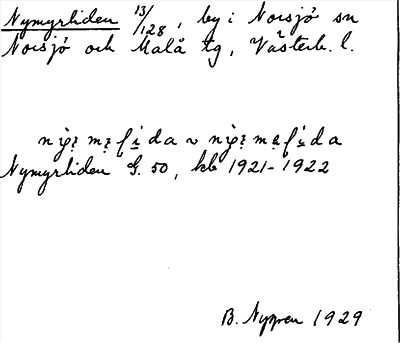 Nymyrliden 13/128, by i Norsjö sn
Norsjö och Malå tg, Västerb. l.
Nymyrliden G. 50, kb 1921-1922
B. Nygren 1929